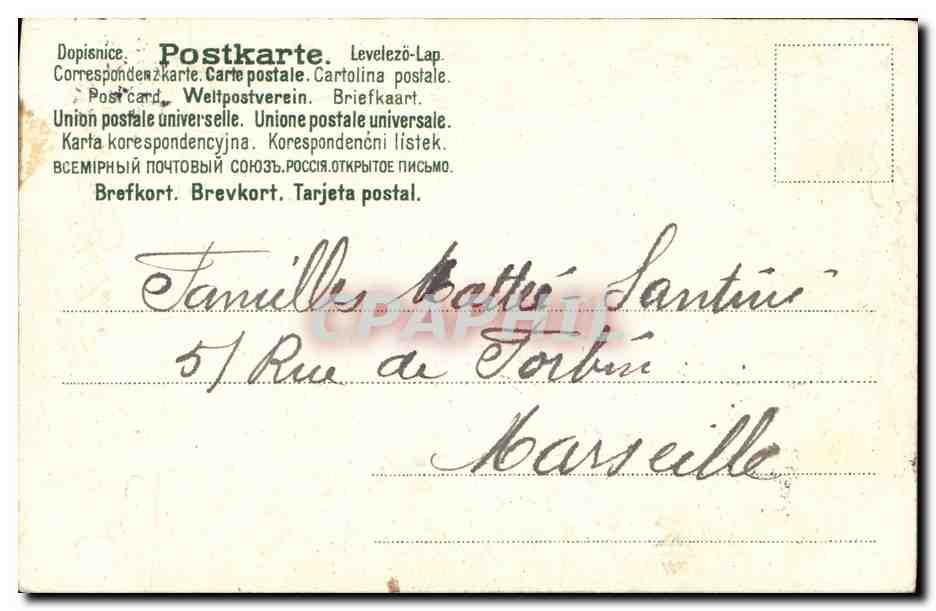 Dopisnice. Postkarte. Levelezö-Lap.
Correspondenzkarte. Carte postale. Cartolina postale.
Post card. Weltpostverein. Briefkaart.
Union postale universelle. Unione postale universale.
Karta korespondencyjna. Korespondenční lístek.
ВСЕМІРНЫЙ ПОЧТОВЫЙ СОЮЗЪ. РОССІЯ. ОТКРЫТОЕ ПИСЬМО.
Brefkort. Brevkort. Tarjeta postal.
Familles Mattei-Santini
CPAPHIL
51 Rue de Forbin
Marseille